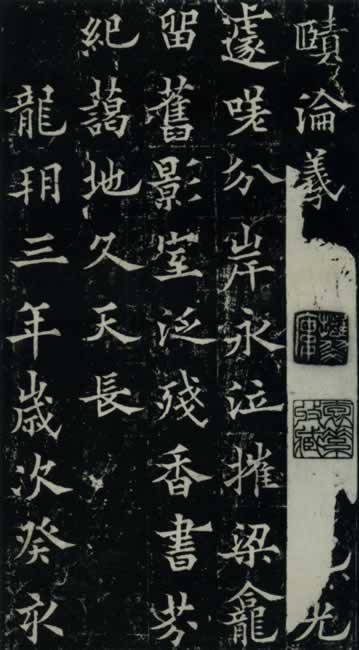 賾淪羲光
遽嗟分岸永泣摧梁龕
留舊影室泛殘香書芬
紀藹地久天長
龍朔三年歲次癸亥